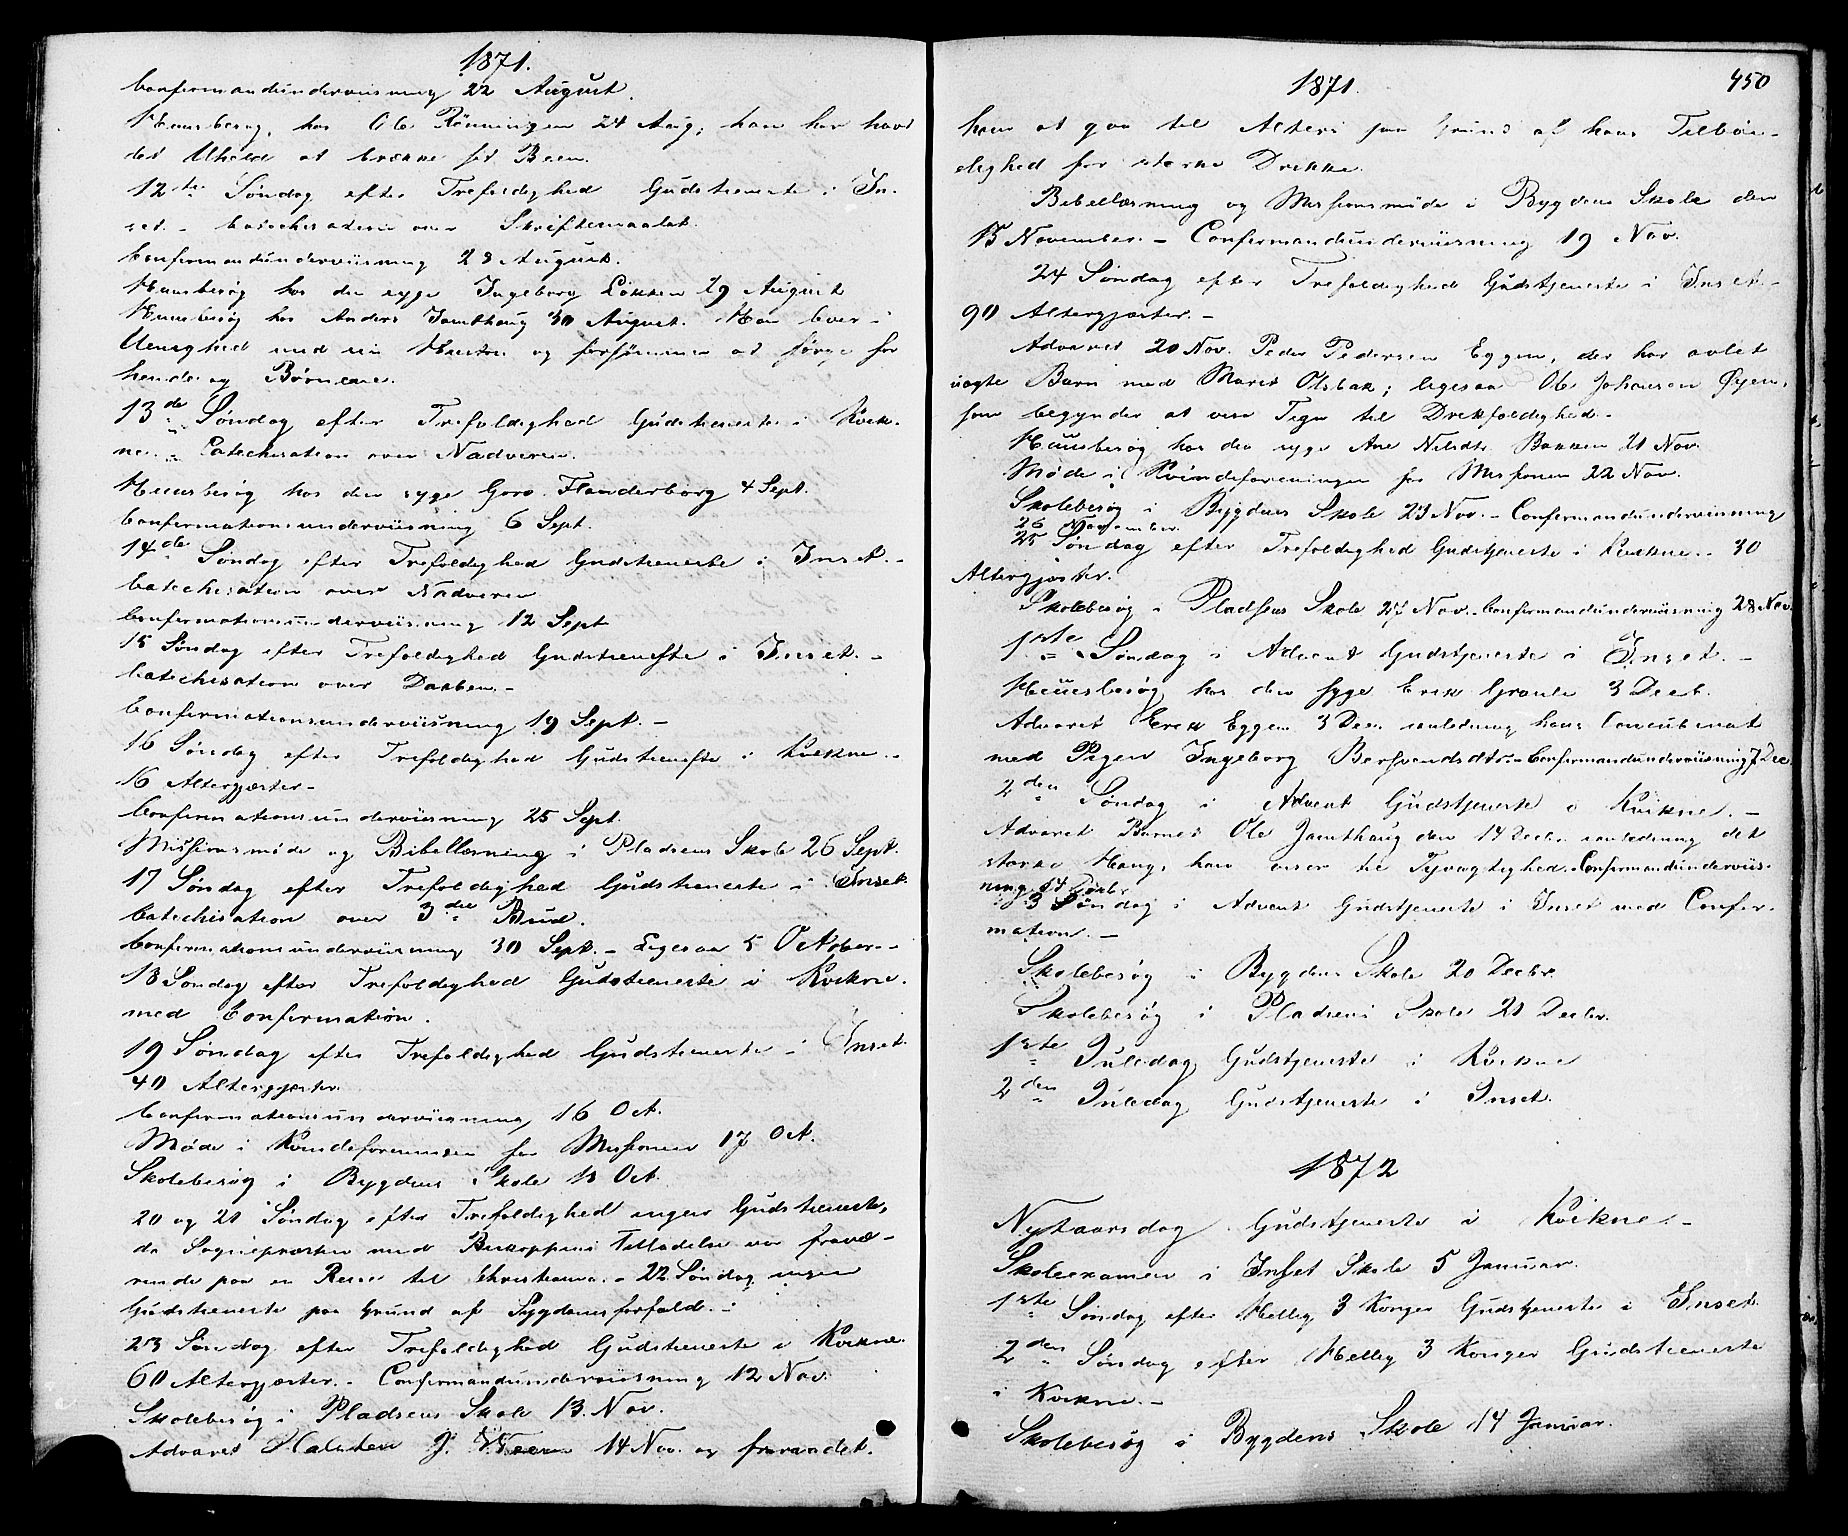 1871.
Confirmandundervisning 22 August.
Huusbesøg hos Ole Rønningen 24 Aug; han har havt
det Uheld at brække sit Been.
12te Søndag efter Trefoldighed Gudstieneste i In-
set. - Catechisation over Skriftemaalet.
Confirmandundervisning 28 August.
Huusbesøg hos den syge Ingeborg Løkken 29 August
Huusbesøg hos Anders Jamthaug 30 August. Han lever i
Uenighed med sin Hustru og forsømmer at sørge for
hende og Børnene.
13de Søndag efter Trefoldighed Gudstieneste i Kvik-
ne. - Catechisation over Nadveren.
Huusbesøg hos den syge Goro Flanderborg 4 Sept.
Confirmationsundervisning 6 Sept.
14de Søndag efter Trefoldighed Gudstieneste i Inset. -
Catechisation over Nadveren
Confirmationsundervisning 12 Sept
15 Søndag efter Trefoldighed Gudstieneste i Inset. -
Catechisation over Daaben. -
Confirmationsundervisning 19 Sept. -
16 Søndag efter Trefoldighed Gudstieneste i Kvikne. -
16 Altergjæster -
Confirmationsundervisning 25 Sept.
Missionsmøde og Bibellæsning i Pladsens Skole 26 Sept.
17 Søndag efter Trefoldighed Gudstieneste i Inset.
Catechisation over 3die Bud.
Confirmationsundervisning 30 Sept. - Ligesaa 5 October. -
18 Søndag efter Trefoldighed Gudstieneste i Kvikne.
med Confirmation.
19 Søndag efter Trefoldighed Gudstieneste i Inset.
40 Altergjæster.
Confirmationsundervisning 16 Oct.
Møde i Kvindeforeningen for Missionen 17 Oct.
Skolebesøg i Bygdens Skole 18 Oct.
20 og 21 Søndag efter Trefoldighed ingen Gudstieneste,
da Sognepræsten med Biskoppens Tilladelse var fravæ-
rende paa en Reise til Christiania. - 22 Søndag ingen
Gudstieneste paa Grund af Sygdomsforfald. -
23 Søndag efter Trefoldighed Gudstieneste i Kvikne.
60 Altergjæster. - Confirmandundervisning 12 Nov.
Skolebesøg i Pladsens Skole 13. Nov.
Advaret Halsten J. 14 Nov. og fraraadet.
450
1871.
ham at gaa til Alters paa Grund af hans Tilbøie-
lighed for stærke Drikke.
Bibellæsning og Missionsmøde i Bygdens Skole den
15 November. - Confirmandundervisning 19 Nov.
24 Søndag efter Trefoldighed Gudstjeneste i Inset. -
90 Altergjæster. -
Advaret 20 Nov. Peder Pedersen Eggen, der har avlet
uægte Barn med Marit Olsbak; ligesaa Ole Johansen Øien,
som begynder at vise Tegn til Drikfældighed. -
Huusbesøg hos den syge Ane Nilsdtr Bakken 21 Nov.
Møde i Kvindeforeningen for Missionen 22 Nov.
Skolebesøg i Bygdens Skole 23 Nov. - Confirmandundervisning
26 November.
25 Søndag efter Trefoldighed Gudstjeneste i Kvikne. - 30
Altergjæster.
Skolebesøg i Pladsens Skole 27 Nov. - Confirmandundervisning 28 Nov.
1ste Søndag i Advent Gudstjeneste i Inset. -
Huusbesøg hos den syge Erik Graule 3 Decb.
Advaret Erik Eggen 3 Dec. anledning hans Concubinat
med Pigen Ingeborg Bersvendsdtr. - Confirmandundervisning 7 Dec.
2den Søndag i Advent Gudstjeneste i Kvikne. -
Advaret Ole Jamthaug den 14 Decbr anledning det
stærke Hang, han viser til Tyvagtighed. Confirmandundervis-
ning 14 Decbr
3 Søndag i Advent Gudstjeneste i Inset med Confir-
mation. -
Skolebesøg i Bygdens Skole 20 Decbr.
Skolebesøg i Pladsens Skole 21 Decbr.
1ste Juledag Gudstjeneste i Kvikne
2den Juledag Gudstjeneste i Inset.
1872
Nytaarsdag Gudstjeneste i Kvikne. -
Skoleexamen i Inset Skole 5 Januar.
1ste Søndag efter Hellig 3 Konger Gudstjeneste i Inset.
2den Søndag efter Hellig 3 Konger Gudstieneste
i Kvikne. -
Skolebesøg i Bygdens Skole 14 Januar.